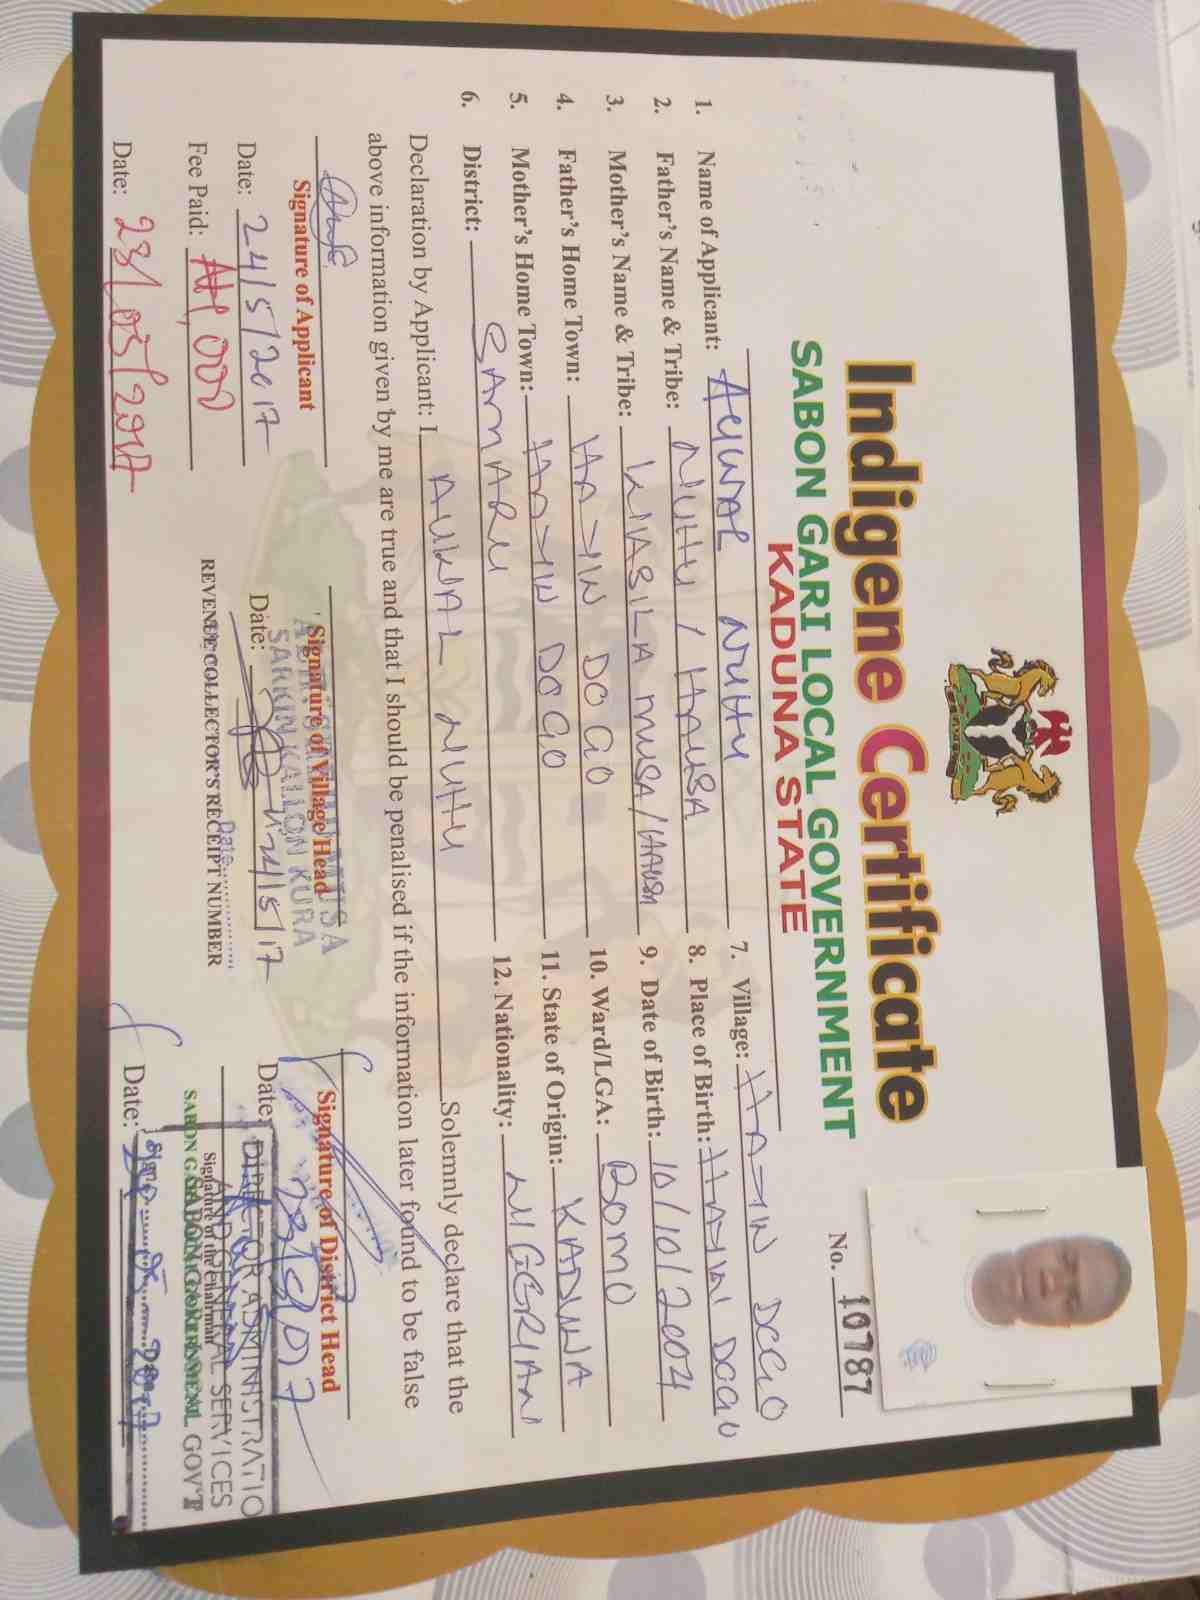 Indigene Certificate
SABON GARI LOCAL GOVERNMENT
KADUNA STATE
No. 10787
1. Name of Applicant: AUWAL NUHU
2. Father's Name & Tribe: NUHU / HAUSA
3. Mother's Name & Tribe: WASILA MUSA/HAUSA
4. Father's Home Town: HAYIN DOGO
5. Mother's Home Town: HAYIN DOGO
6. District: SAMARU
7. Village: HAYIN DOGO
8. Place of Birth: HAYIN DOGO
9. Date of Birth: 10/10/2004
10. Ward/LGA: BOMO
11. State of Origin: KADUNA
12. Nationality: NIGERIAN
Declaration by Applicant: I AUWAL NUHU Solemnly declare that the
above information given by me are true and that I should be penalised if the information later found to be false
Signature of Applicant
Date: 24/5/2017
Fee Paid: ₦1,000
Date: 23/05/2017
Signature of Village Head
MUSA
SARKIN KALLON KURA
Date: 24/5/17
Date
REVENUE COLLECTOR'S RECEIPT NUMBER
Signature of District Head
Date:
DIRECTOR ADMINISTRATIO
AND GENERAL SERVICES
SABON GARI LOCAL GOV'T
Signature of the Chairman
SABON GARI LOCAL GOVERNMENT
Date: